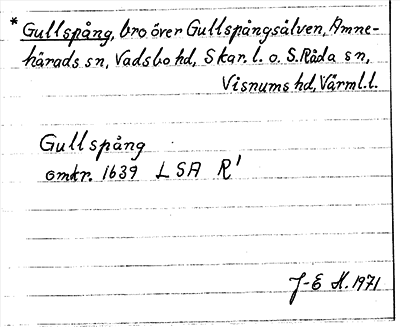 * Gullspång, bro över Gullspångsälven, Amne-
härads sn, Vadsbo hd, Skar. l. o. S. Råda sn,
Visnums hd, Värml. l.
Gullspång
omkr. 1639 LSA R'
J-E H. 1971